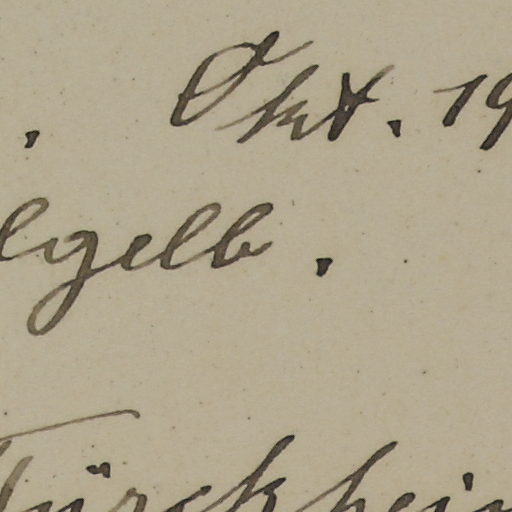 . Okt. 19
lgelb.
Türckhei